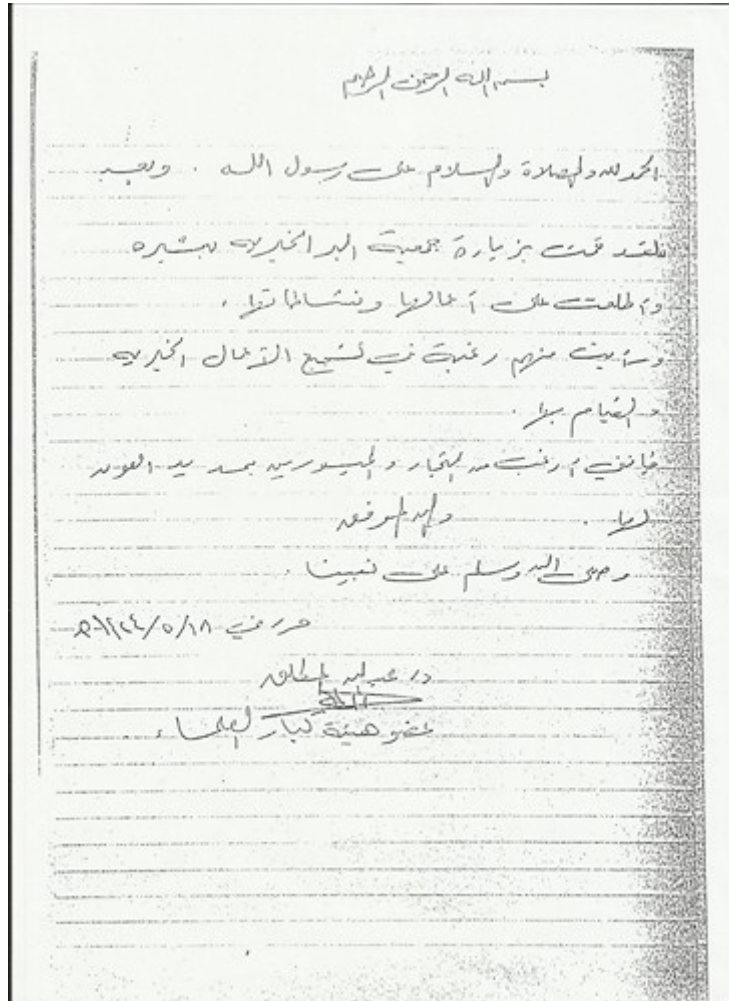 بسم الله الرحمن الرحيم
الحمد لله والصلاة والسلام على رسول الله . وبعد
فلقد قمت بزيارة جمعية البر الخيريه ببشره
واطلعت على أعمالها ونشاطاتها .
ورأيت منهم رغبة في تشجيع الأعمال الخيريه
والقيام بها .
فإنني أرغب من التجار والميسورين بمد يد العون
لها . والله الموفق
وصلى الله وسلم على نبينا .
حرر في ١٨/٥/١٤٢٤هـ
د/ عبدالله المطلق
عضو هيئة كبار العلماء